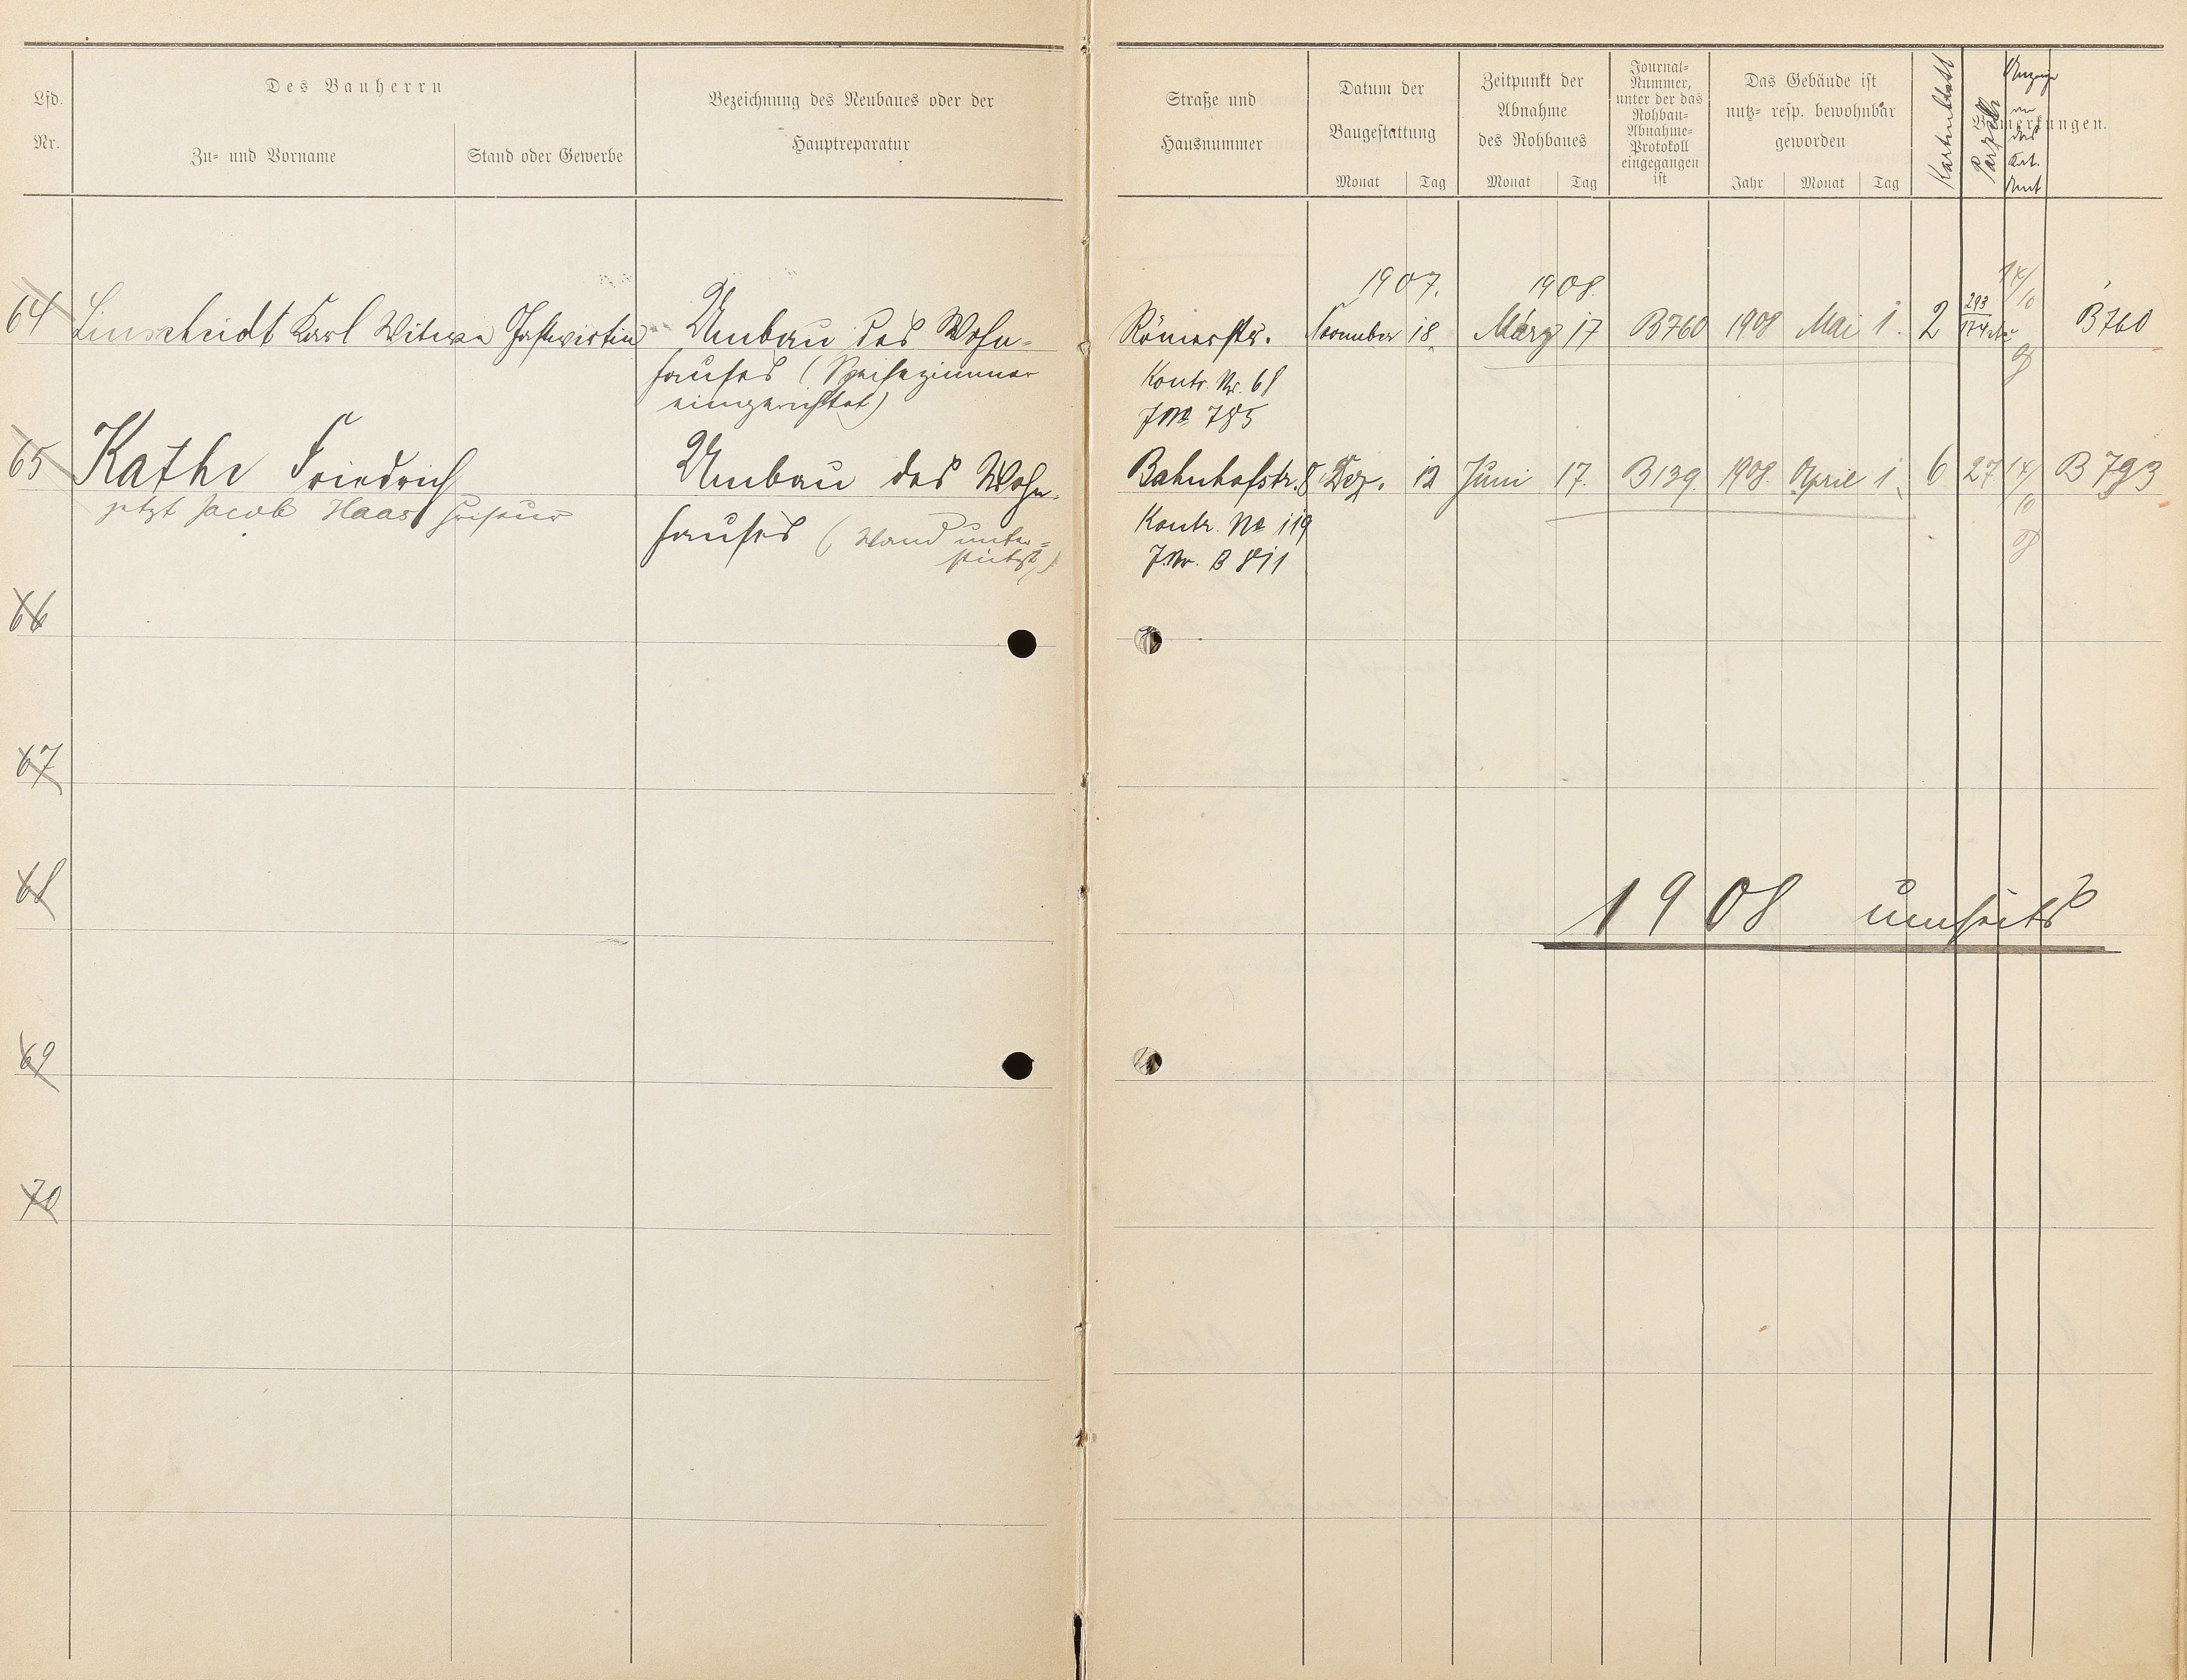 Des Bauherrn
Lfd.
Nr.
Zu- und Vorname
Stand oder Gewerbe
Bezeichnung des Neubaues oder der
Hauptreparatur
Straße und
Hausnummer
Datum der
Baugestattung
Monat Tag
Zeitpunkt der
Abnahme
des Rohbaues
Monat Tag
Journal-
Nummer,
unter der das
Rohbau-
Abnahme-
Protokoll
eingegangen
ist
Das Gebäude ist
nutz- resp. bewohnbar
geworden
Jahr Monat Tag
Kartenblatt
Parzelle
Anzeige
an
das
Kat.
Amt
Bemerkungen.
1907. 1908.
64 Linscheidt Karl Witwe Gastwirtin Umbau des Wohn- Römerstr. November 18. März 17 B760 1908 Mai 1. 2 293 14/10 B760
hauses (Speisezimmer Kontr. Nr. 68
eingerichtet) J.No 785
65 Kathe Friedrich Umbau des Wohn- Bahnhofstr. 8 Dez. 12 Juni 17. B139. 1908. April 1. 6 27 14/10 B 793
jetzt Jacob Haas Friseur hauses (Wand unter- Kontr. No 119
stützt) J.Nr. B 811
66
67
68
1908 umseits
69
70